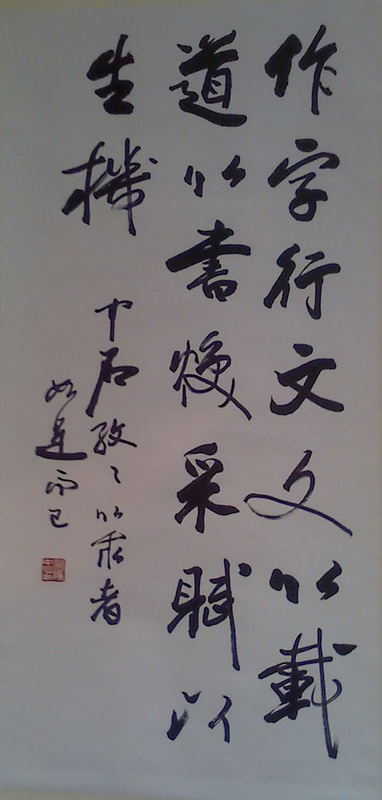 作字行文文以載
道以書煥采賦以
生機
中石孜〻以求者
如是而已